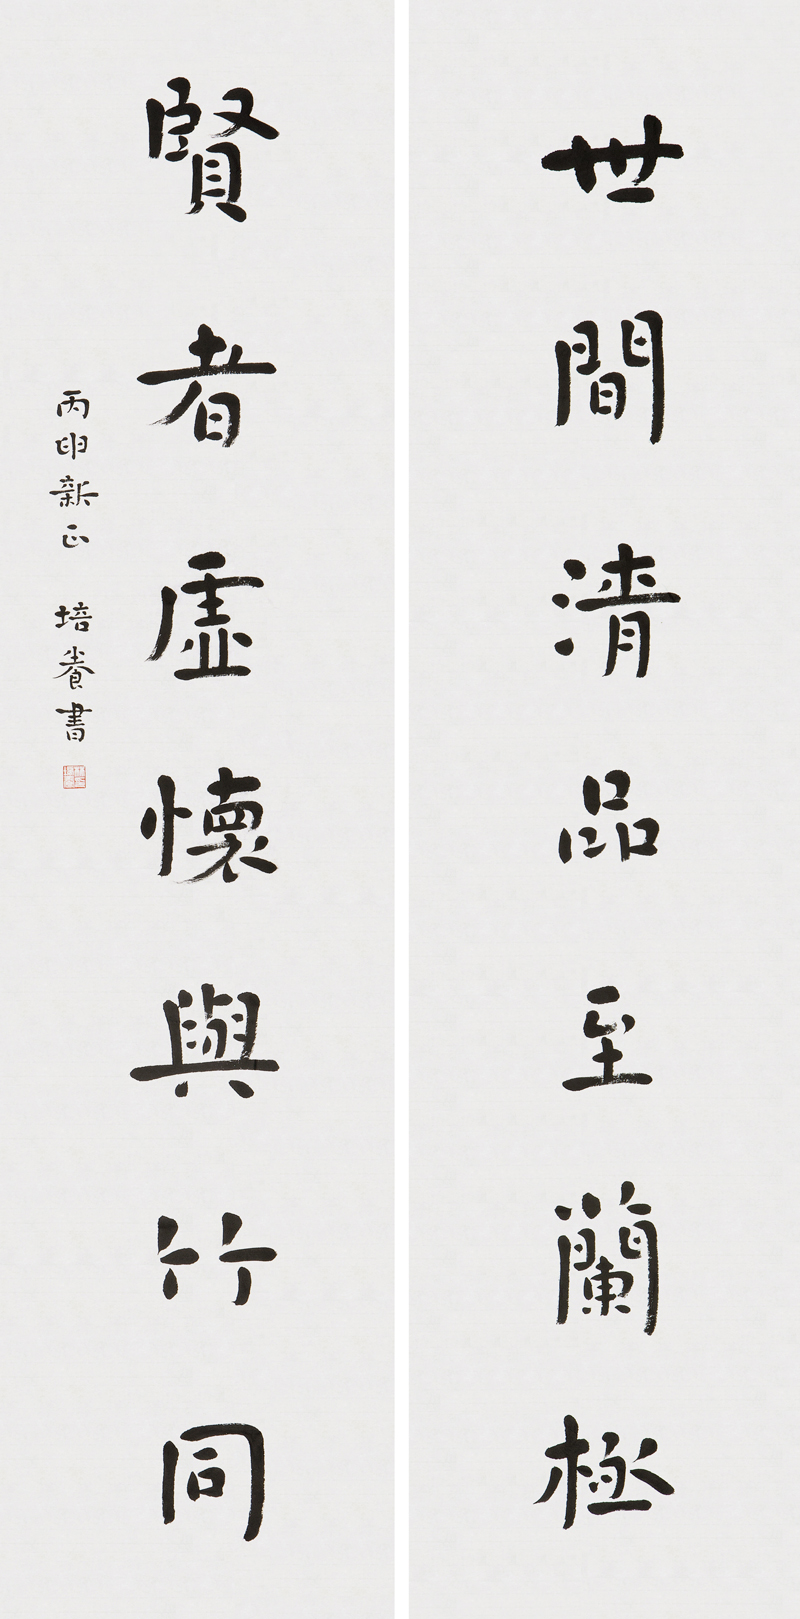 世間清品至蘭極
賢者虛懷與竹同
丙申新正 培養書